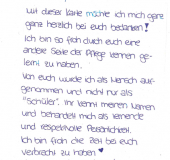 Mit dieser Karte möchte ich mich ganz
ganz herzlich bei euch bedanken!
Ich bin so froh durch euch eine
andere Seite der Pflege kennen ge-
lernt zu haben.
Von euch wurde ich als Mensch auf-
genommen und nicht nur als
"Schüler". Ihr kennt meinen Namen
und behandelt mich als lernende
und respektvolle Persönlichkeit.
Ich bin froh die Zeit bei euch
verbracht zu haben ♥